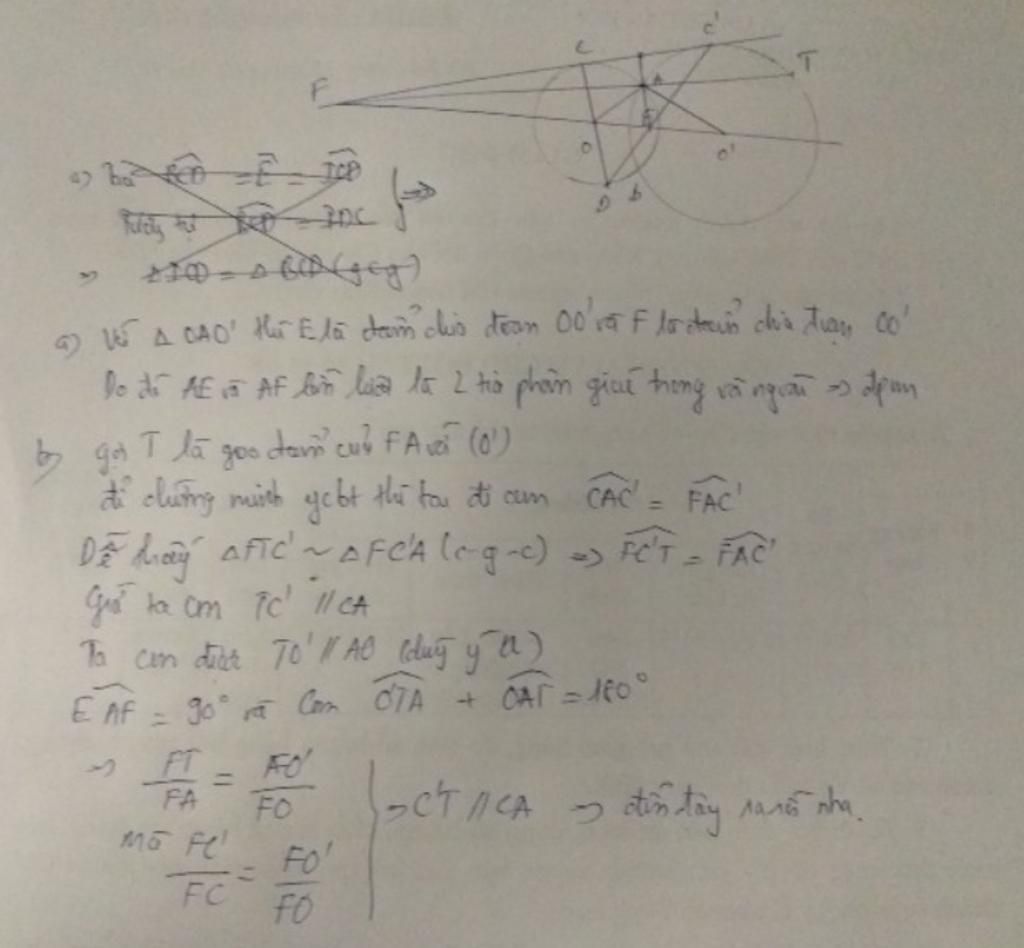 F C C' T A E O O' D B
a)
Tương tự = BDC
⇒ ΔICD = ΔBCD (g c g)
a) Với Δ OAO' thì E là điểm chia đoạn OO' và F là điểm chia đoạn OO'
Do đó AE và AF lần lượt là 2 tia phân giác trong và ngoài ⇒ đpcm
b) gọi T là giao điểm của FA với (O')
để chứng minh ycbt thì ta đi cm CAC' = FAC'
Dễ thấy ΔFTC' ~ ΔFC'A (c-g-c) ⇒ FC'T = FAC'
Giờ ta cm TC' // CA
Ta cm được TO' // AO (duy ý a)
EAF = 90° và Cm O'TA + OAT = 180°
⇒ FT/FA = FO'/FO
Mà FC'/FC = FO'/FO
⇒ C'T // CA ⇒ đến đây ra rồi nha.